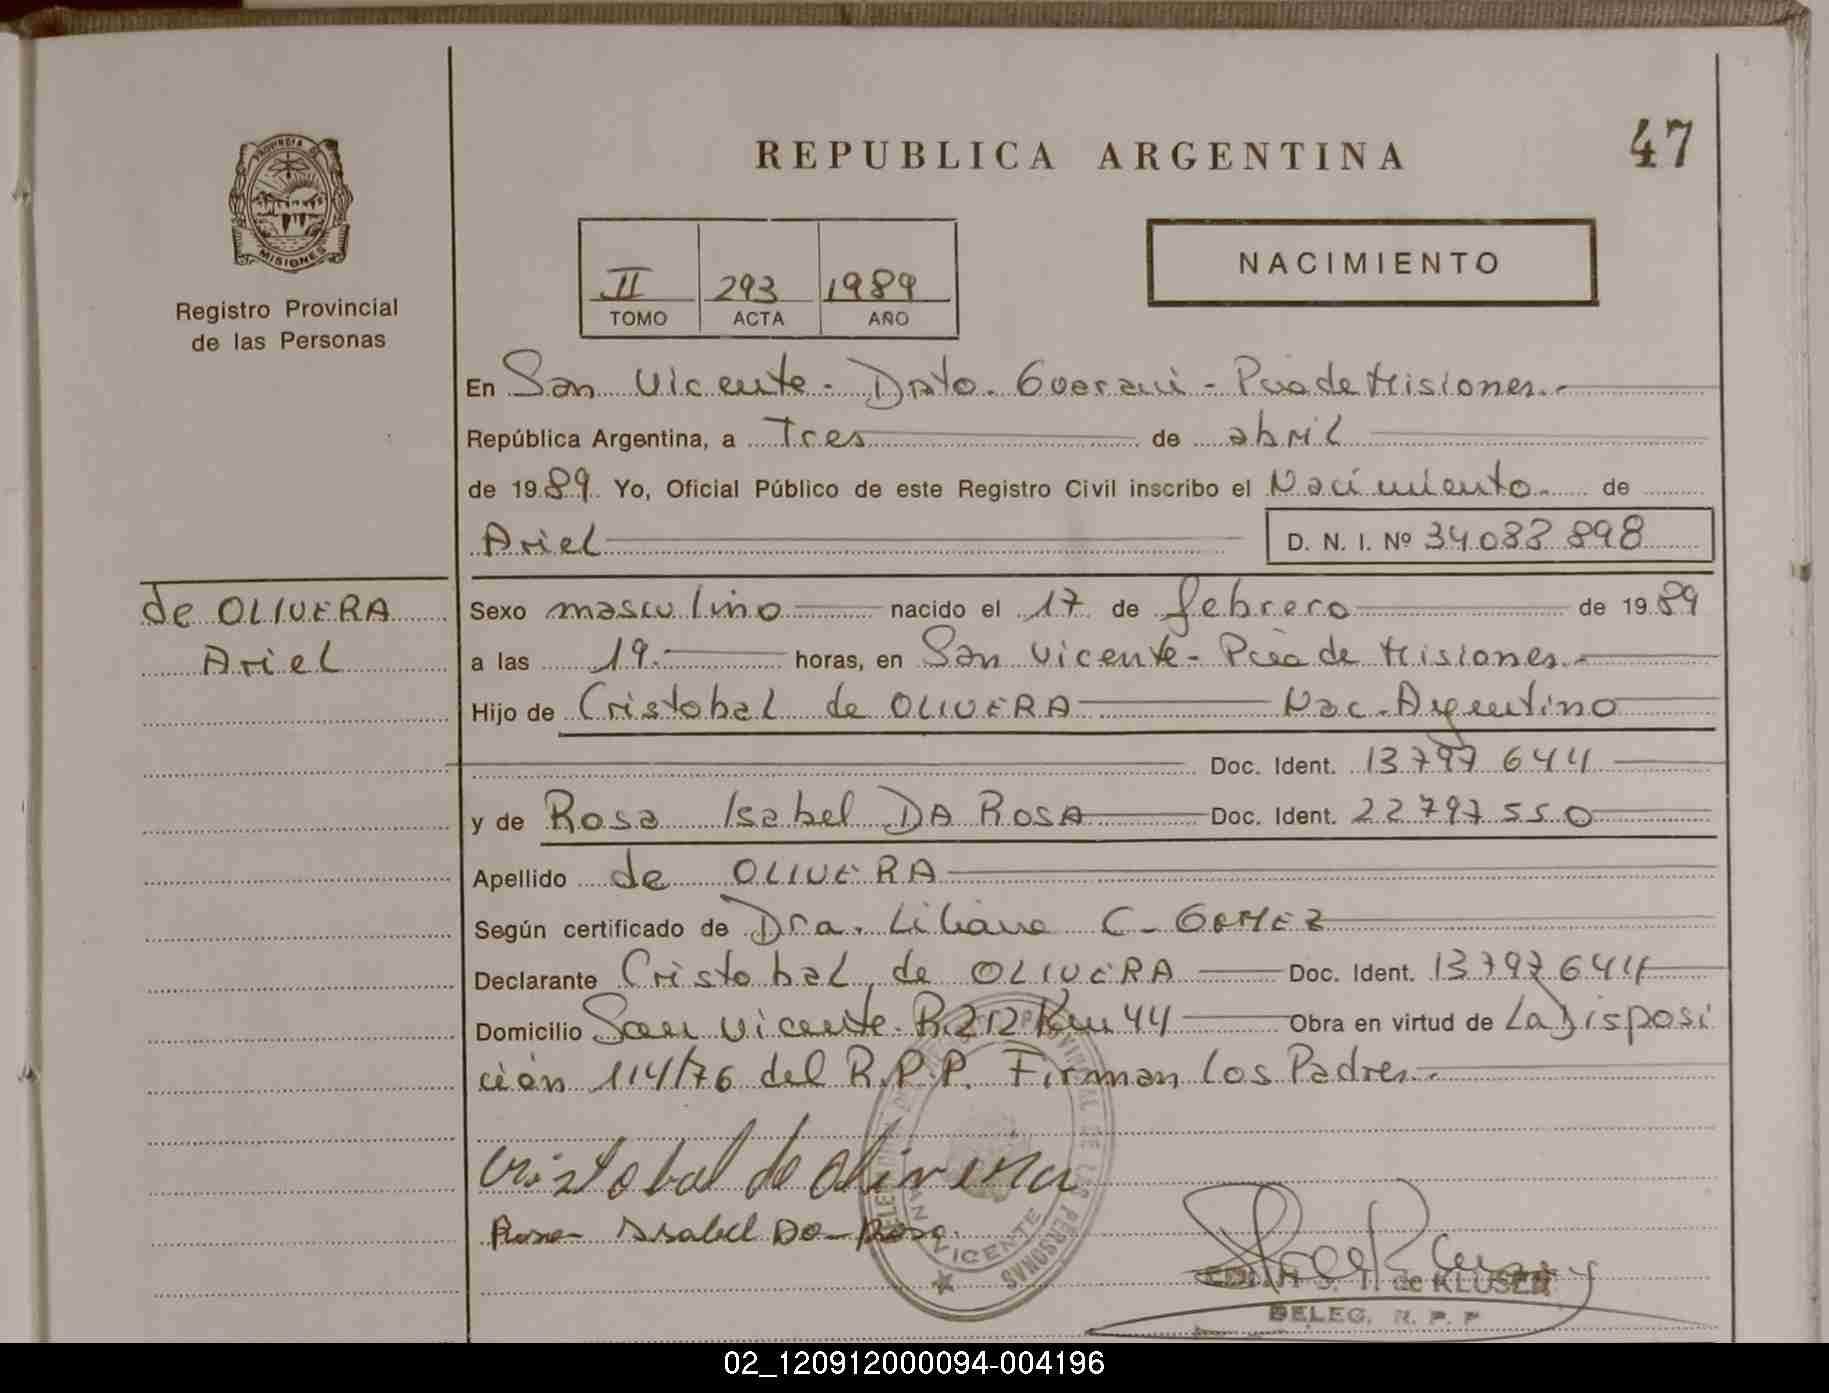 47
REPUBLICA ARGENTINA
PROVINCIA DE
MISIONES
Registro Provincial
de las Personas
II 293 1989
TOMO ACTA AÑO
NACIMIENTO
En San Vicente - Dpto. Guarani - Pcia de Misiones.-
República Argentina, a Tres de abril
de 1989 Yo, Oficial Público de este Registro Civil inscribo el Nacimiento de
Ariel D. N. I. Nº 34.083.898
de OLIVERA
Ariel
Sexo masculino nacido el 17 de febrero de 1989
a las 19.- horas, en San Vicente - Pcia de Misiones.-
Hijo de Cristobal de OLIVERA Nac. Argentino
Doc. Ident. 13 797 644
y de Rosa Isabel DA ROSA Doc. Ident. 22 797 550
Apellido de OLIVERA
Según certificado de Dra. Liliana C. GOMEZ
Declarante Cristobal de OLIVERA Doc. Ident. 13 797 644
Domicilio San Vicente R.212 Km 44 Obra en virtud de La Disposi
ción 114/76 del R.P.P. Firman los Padres.-
Cristobal de olivera
Rosa Isabel Da Rosa.
PROVINCIAL DE LAS PERSONAS
VICENTE
de KLUSEN
DELEG. R. P. P
02_120912000094-004196